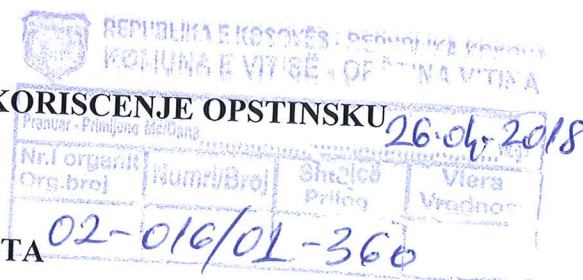 REPUBLIKA E KOSOVËS - REPUBLIKA KOSOVA
KOMUNA E VITISË - OPŠTINA VITINA
KORISCENJE OPSTINSKU 26.04.2018
Pranuar - Primljeno
Nr.i organit Numri/Broj Shtojcë Vlera
Org.broj Prilog Vrednos
TA 02-016/01-360